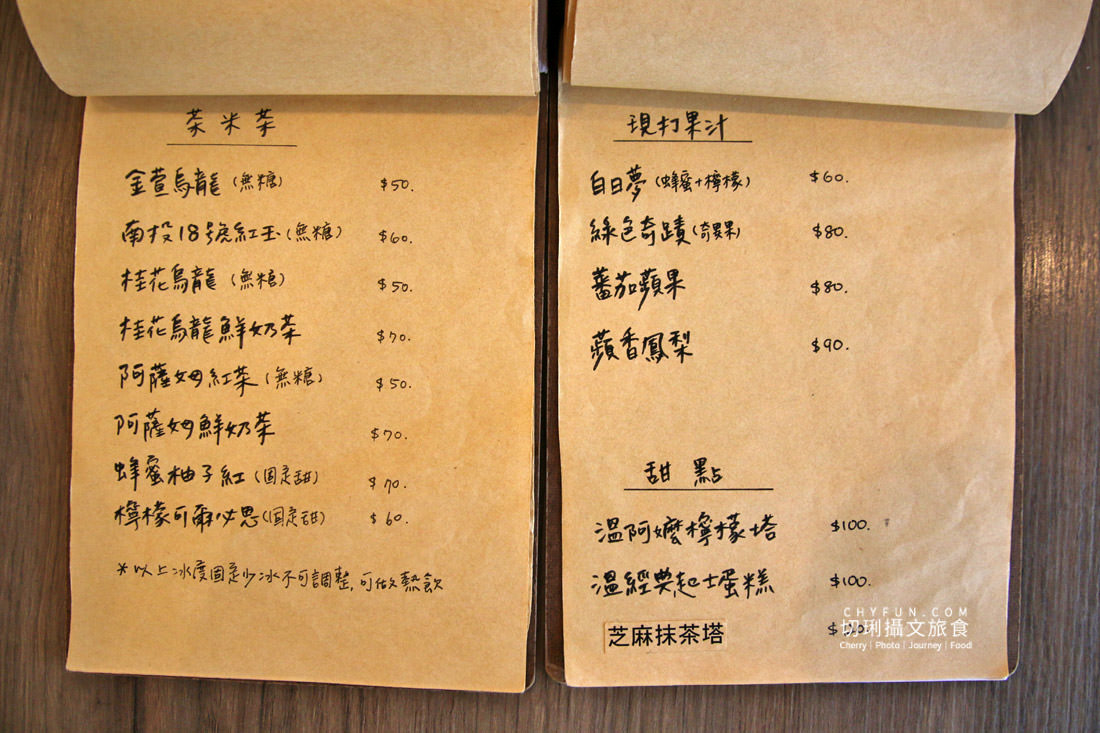 茶米茶
金萱烏龍(無糖) $50.
南投18號紅玉(無糖) $60.
桂花烏龍(無糖) $50.
桂花烏龍鮮奶茶 $70.
阿薩姆紅茶(無糖) $50.
阿薩姆鮮奶茶 $70.
蜂蜜柚子紅(固定甜) $70.
檸檬可爾必思(固定甜) $60.
*以上冰度固定少冰不可調整,可做熱飲
現打果汁
白日夢(蜂蜜+檸檬) $60.
綠色奇蹟(奇異果) $80.
蕃茄蘋果 $80.
蘋香鳳梨 $90.
甜點
溫阿嬤檸檬塔 $100.
溫經典起士蛋糕 $100.
芝麻抹茶塔
CHYFUN.COM
切琍攝文旅食
Cherry | Photo | Journey | Food